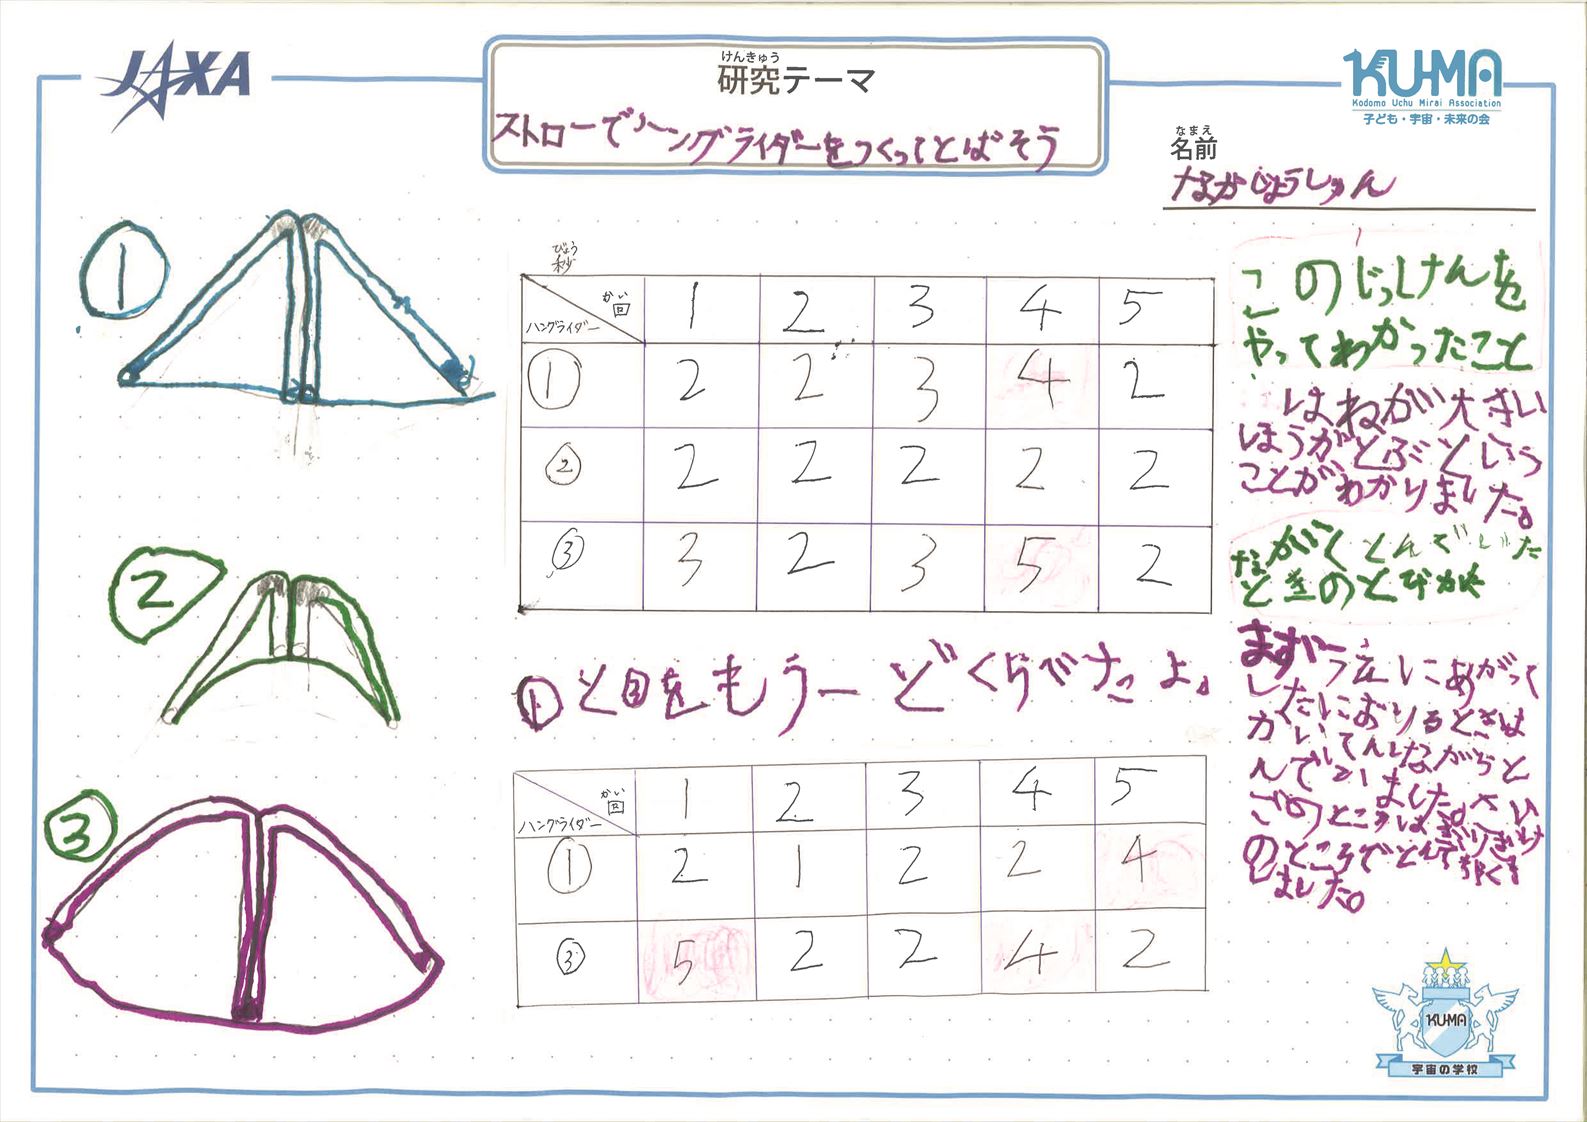 JAXA
けんきゅう
研究テーマ
ストローでハングライダーをつくってとばそう
KU-MA
Kodomo Uchu Mirai Association
子ども・宇宙・未来の会
なまえ
名前
なかじょうしゅん
1
2
3
びょう
秒
かい
回 1 2 3 4 5
ハングライダー
① 2 2 3 4 2
② 2 2 2 2 2
③ 3 2 3 5 2
①と③をもう一どくらべたよ。
かい
回 1 2 3 4 5
ハングライダー
① 2 1 2 2 4
③ 5 2 2 4 2
このじっけんを
やってわかったこと
はねが大きい
ほうがとぶという
ことがわかりました。
ながくとんでいた
ときのとびかた
まず一
したにおりるときは
かいてんしながらと
んでいました。さい
ごのところはぎりぎり
のところでとんでちゃくち
ました。
KU-MA
宇宙の学校